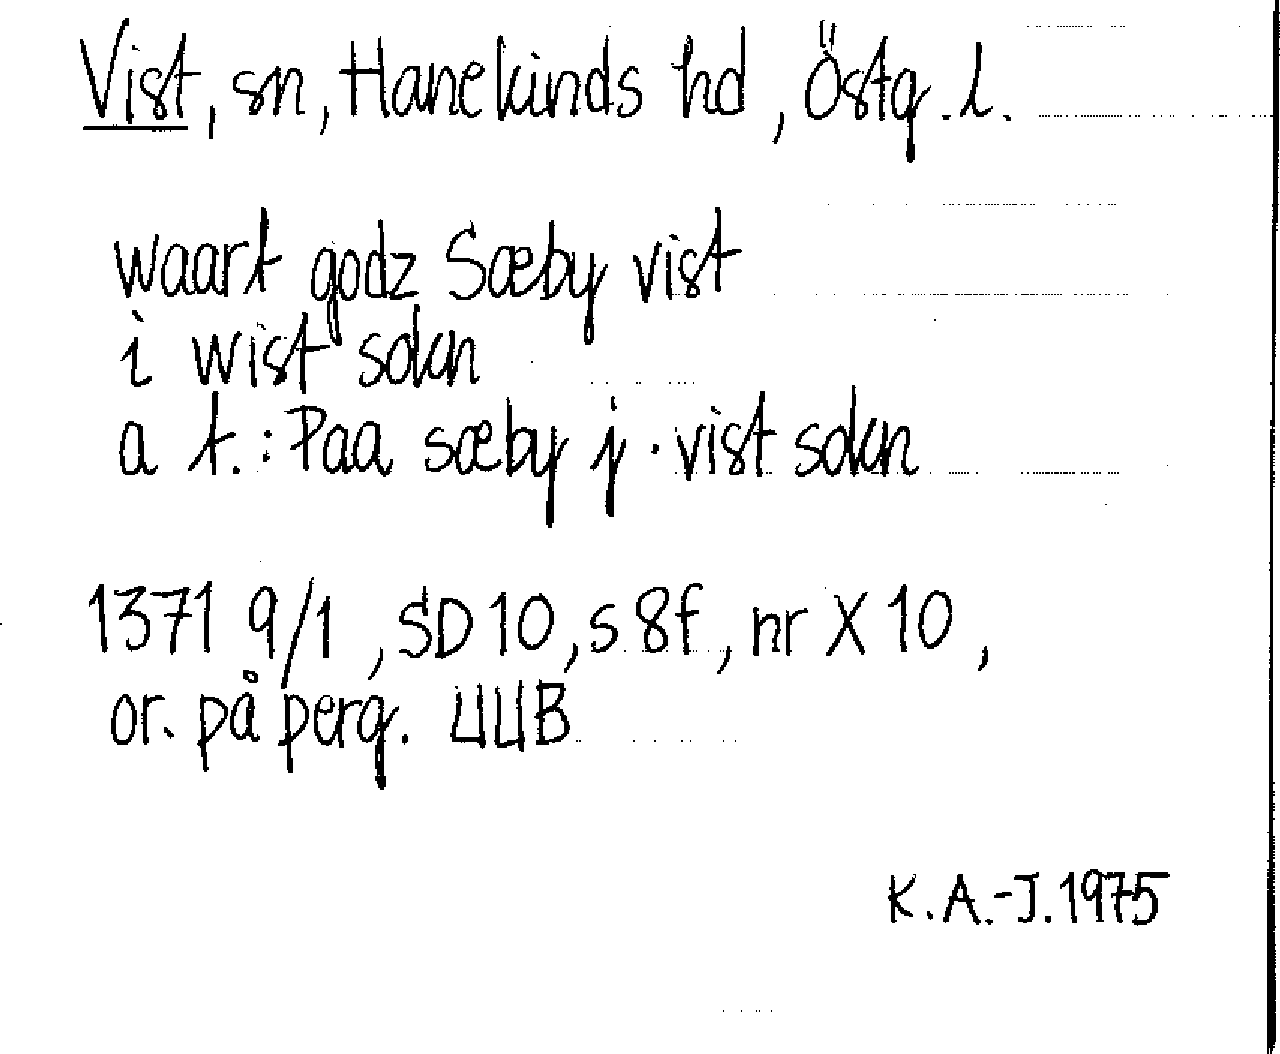 Vist, sn, Hanekinds hd, Östg. l.
waart godz Sæby vist
i wist sokn
a t.: Paa sæby j. vist sokn
1371 9/1, SD 10, s 8f, nr X 10,
or. på perg. UUB
K.A.-J. 1975